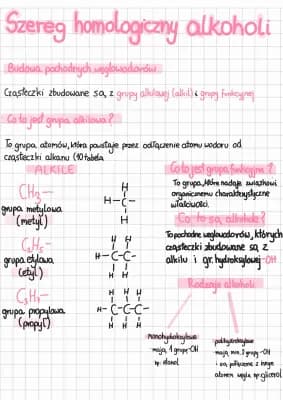 Szereg homologiczny alkoholi
Budowa pochodnych węglowodorów
Cząsteczki zbudowane są z grupy alkilowej (alkil) i grupy funkcyjnej
Co to jest grupa alkilowa?
To grupa atomów, która powstaje przez odłączenie atomu wodoru od
cząsteczki alkanu (10 tabela
ALKILE
CH₃-
grupa metylowa
(metyl)
H
H-C-
H
C₂H₅-
grupa etylowa
(etyl)
H H
H-C-C-
H H
C₃H₇-
grupa propylowa
(propyl)
H H H
H-C-C-C-
H H H
Co to jest grupa funkcyjna?
To grupa, która nadaje związkowi
organicznemu charakterystyczne
właściwości.
Co to są alkohole?
To pochodne węglowodorów, których
cząsteczki zbudowane są z
alkilu i gr. hydroksylowej -OH
Rodzaje alkoholi
monohydroksylowe
mają 1 grupę -OH
np. etanol
polihydroksylowe
mają min. 2 grupy -OH
i są połączone z innym
atomem węgla np. glicerol